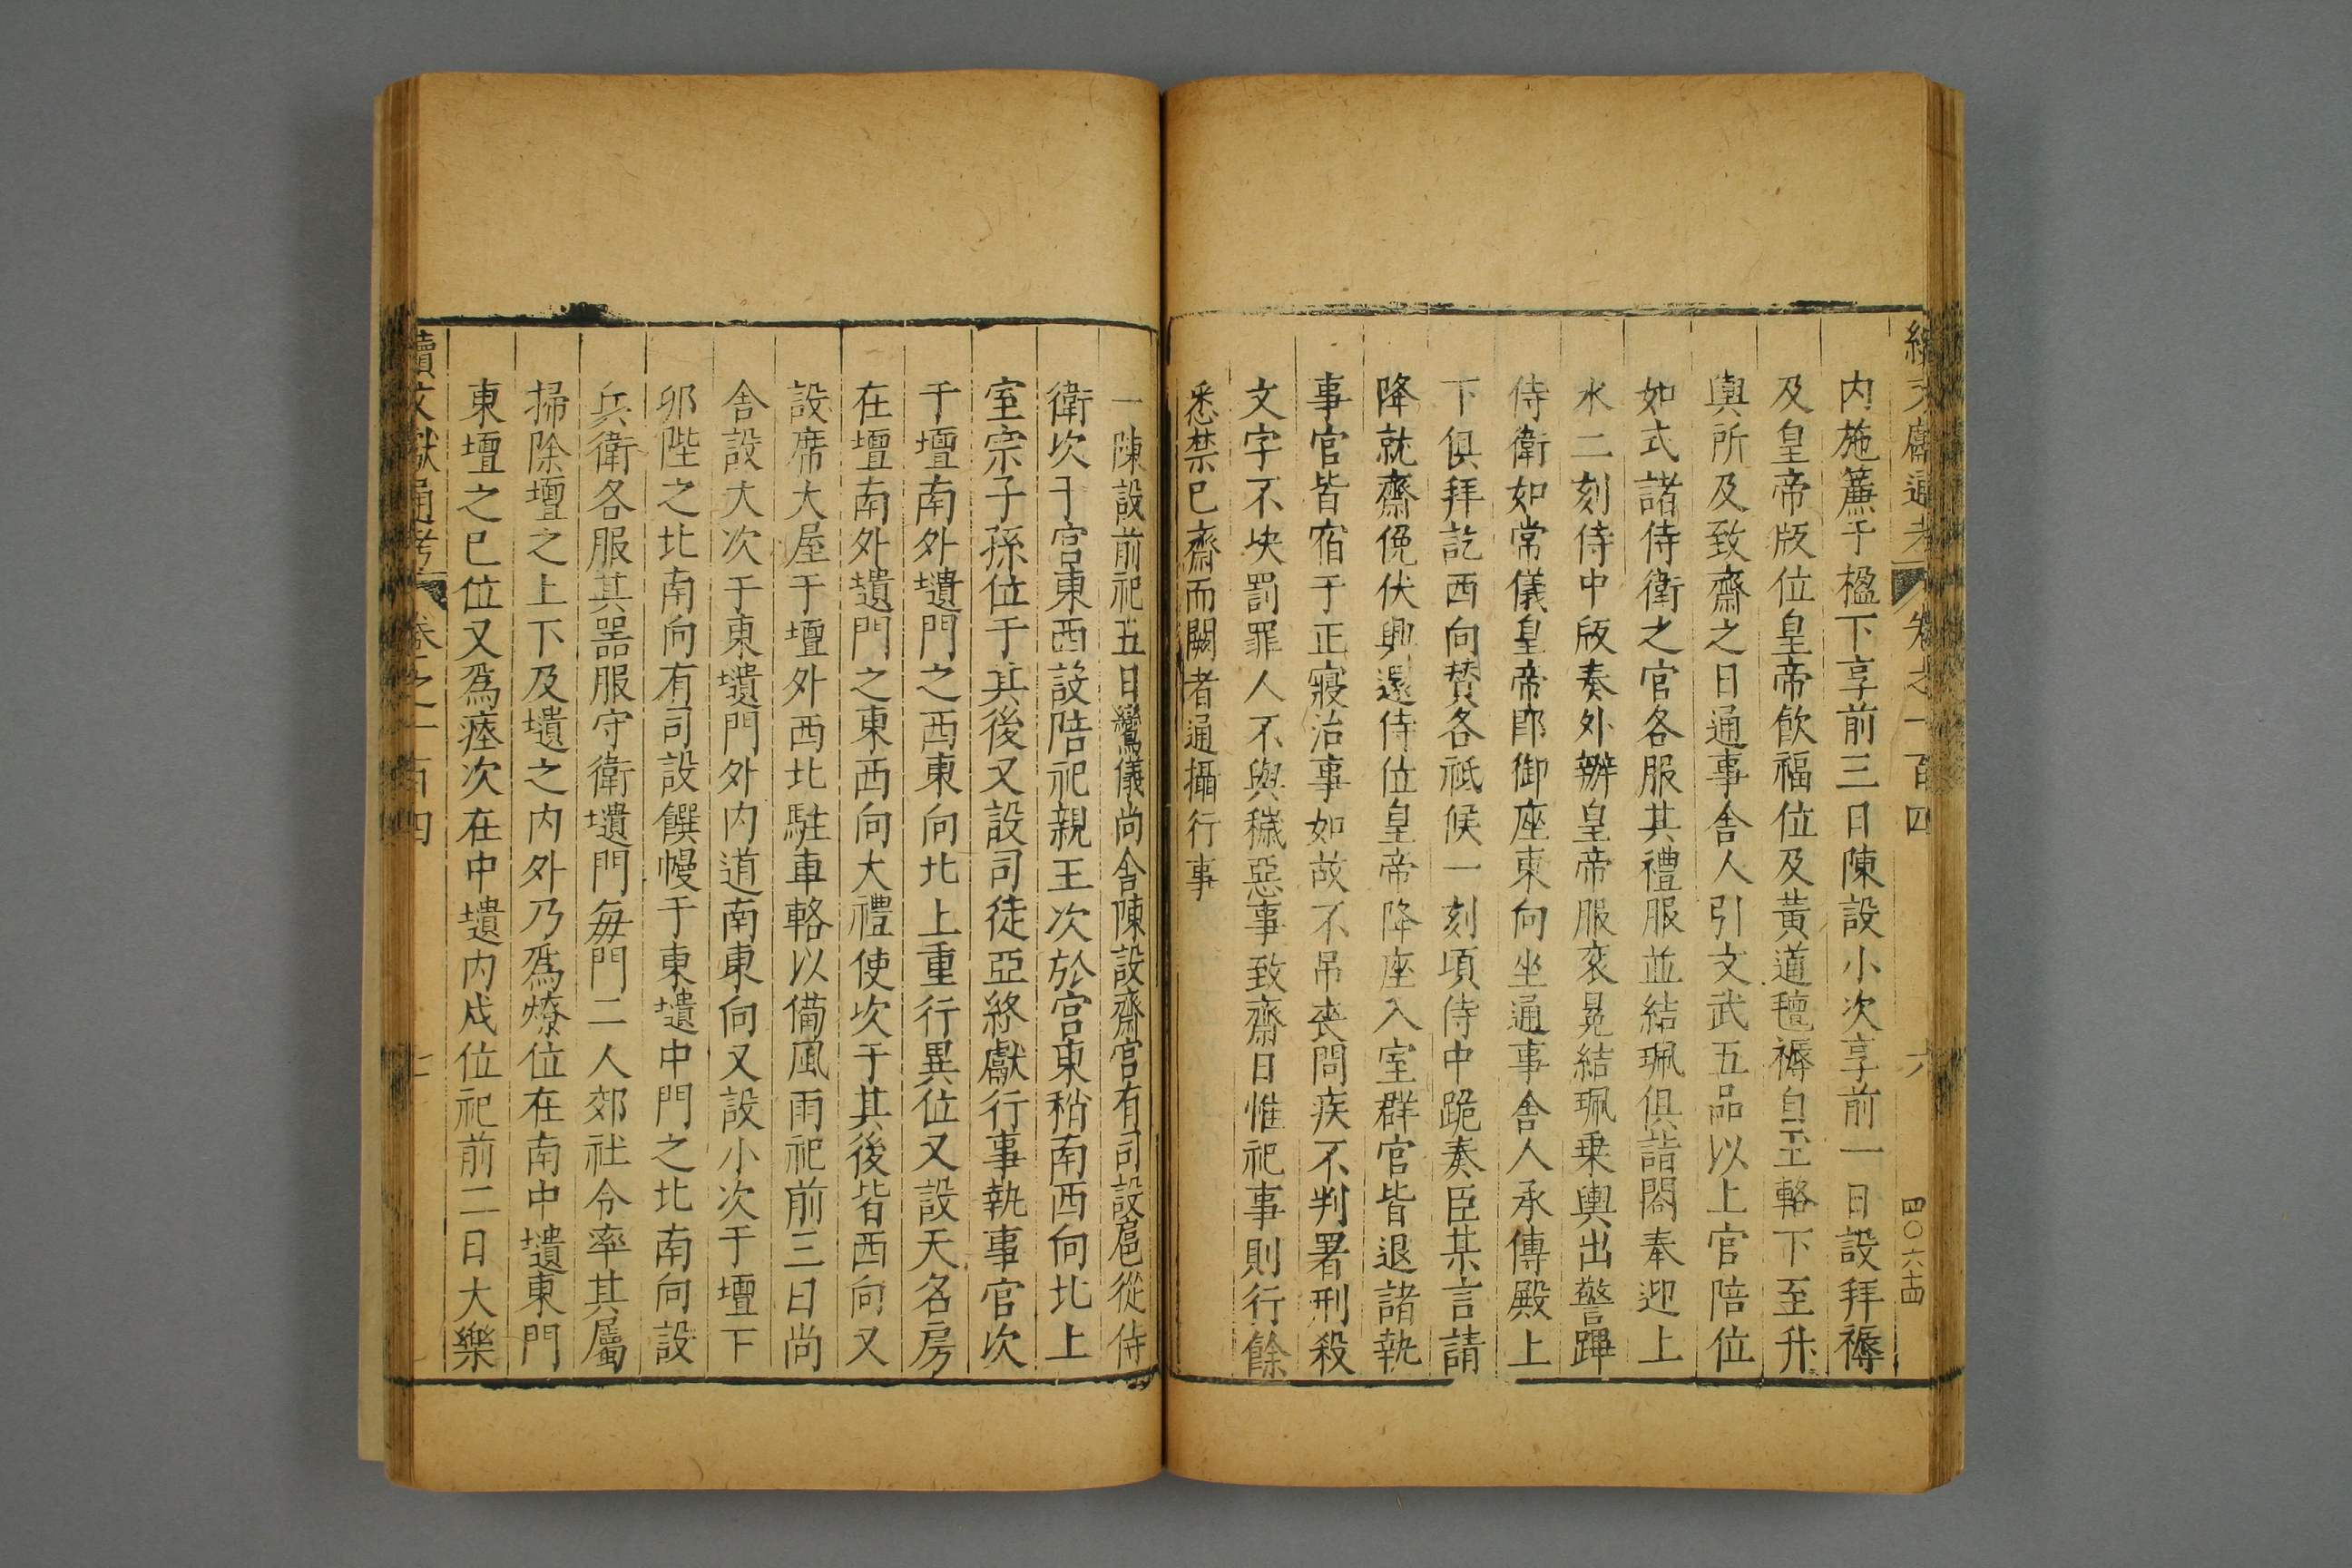 續文獻通考 卷之一百四 六 四〇六十四
内施簾于楹下享前三日陳設小次享前一日設拜褥
及皇帝版位皇帝飲福位及黄道氊褥自玉輅下至升
輿所及致齋之日通事舎人引文武五品以上官陪位
如式諸侍衛之官各服其禮服並結珮俱詣閤奉迎上
水二刻侍中版奏外辦皇帝服衮冕結珮乗輿出警蹕
侍衛如常儀皇帝即御座東向坐通事舎人承傳殿上
下俱拜訖西向賛各祇候一刻頃侍中跪奏臣某言請
降就齋俛伏興還侍位皇帝降座入室群官皆退諸執
事官皆宿于正寢治事如故不吊喪問疾不判署刑殺
文字不决罰罪人不與穢惡事致齋日惟祀事則行餘
悉禁已齋而闕者通攝行事
一陳設前祀五日鸞儀尚舎陳設齋宫有司設扈從侍
衛次于宫東西設陪祀親王次於宫東稍南西向北上
室宗子孫位于其後又設司徒亞終獻行事執事官次
于壇南外壝門之西東向北上重行異位又設天名房
在壇南外壝門之東西向大禮使次于其後皆西向又
設席大屋于壇外西北駐車輅以備風雨祀前三日尚
舎設大次于東壝門外内道南東向又設小次于壇下
夘陛之北南向有司設饌幔于東壝中門之北南向設
兵衛各服其器服守衛壝門每門二人郊社令率其屬
掃除壇之上下及壝之内外乃爲燎位在南中壝東門
東壇之巳位又爲瘞次在中壝内戌位祀前二日大樂
續文獻通考 卷之一百四 七